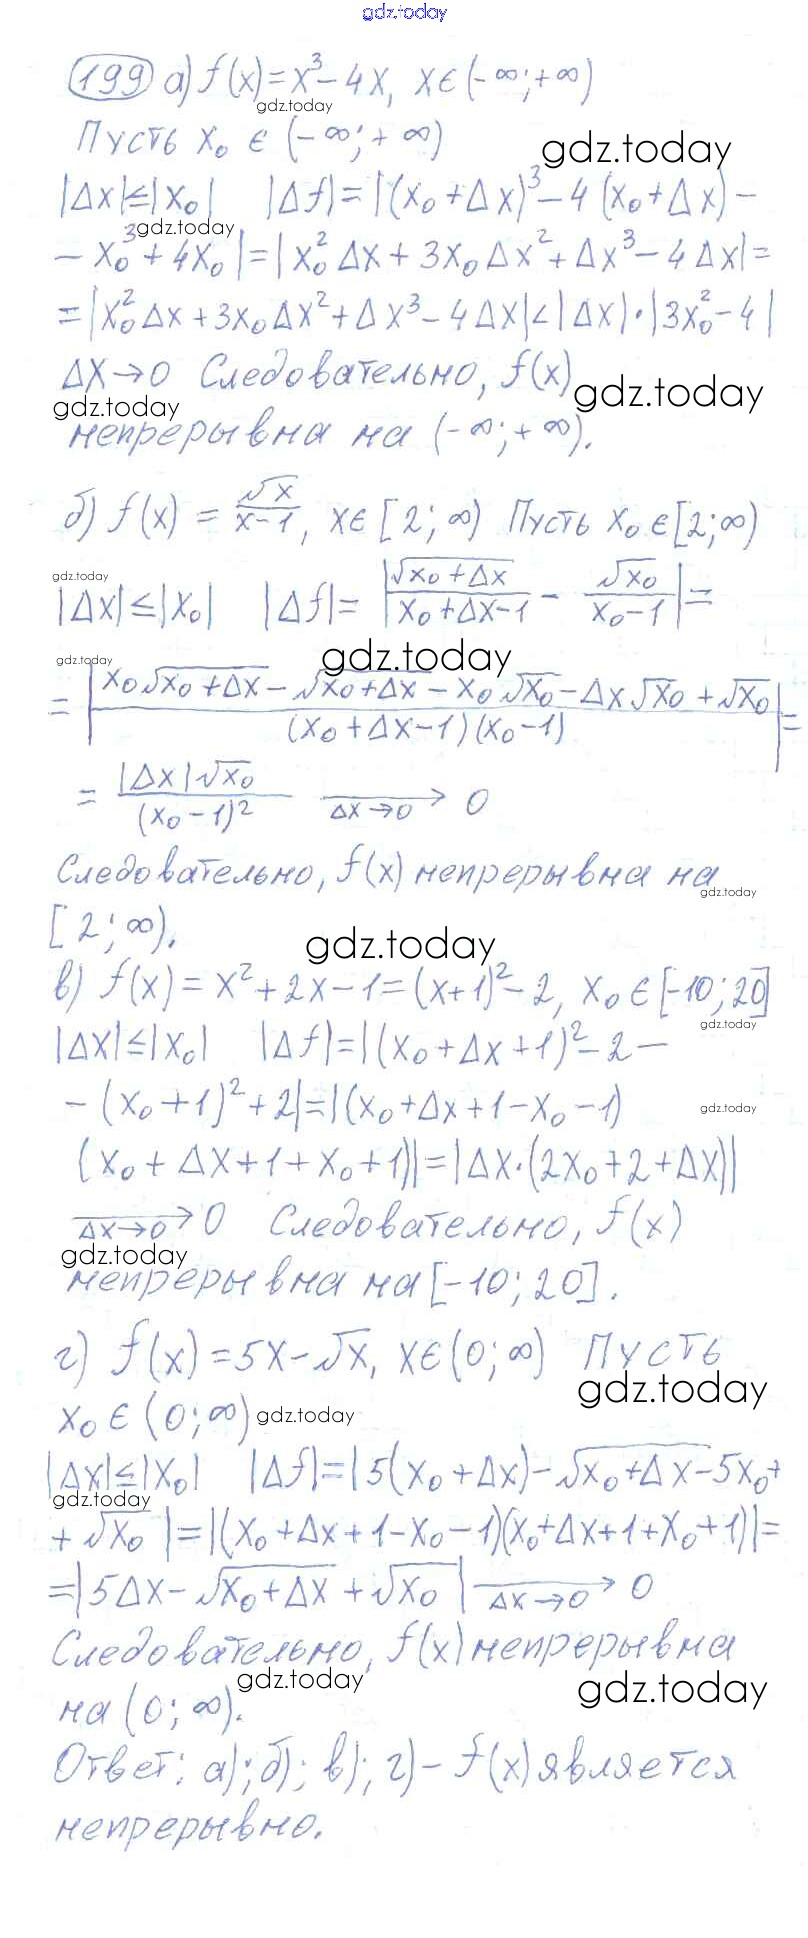 gdz.today
199 а) f(x)=x³-4x, x∈(-∞;+∞)
gdz.today
Пусть x₀ ∈ (-∞;+∞)
gdz.today
|Δx|≤|x₀| |Δf|=|(x₀+Δx)³-4(x₀+Δx)-
gdz.today
-x₀³+4x₀|=|x₀²Δx+3x₀Δx²+Δx³-4Δx|=
=|x₀²Δx+3x₀Δx²+Δx³-4Δx|<|Δx|·|3x₀²-4|
Δx→0 Следовательно, f(x)
gdz.today
gdz.today
непрерывна на (-∞;+∞).
б) f(x) = √x/(x-1), x∈[2;∞) Пусть x₀∈[2;∞)
gdz.today
|Δx|≤|x₀| |Δf|= |√(x₀+Δx)/(x₀+Δx-1) - √x₀/(x₀-1)|=
gdz.today
gdz.today
= |(x₀√(x₀+Δx)-√(x₀+Δx)-x₀√x₀-Δx√x₀+√x₀)/((x₀+Δx-1)(x₀-1))|=
= |Δx|√x₀/(x₀-1)² →(Δx→0) 0
Следовательно, f(x) непрерывна на
gdz.today
[2;∞).
gdz.today
в) f(x)=x²+2x-1=(x+1)²-2, x₀∈[-10;20]
gdz.today
|Δx|≤|x₀| |Δf|=|(x₀+Δx+1)²-2-
-(x₀+1)²+2|=|(x₀+Δx+1-x₀-1)
gdz.today
(x₀+Δx+1+x₀+1)|=|Δx·(2x₀+2+Δx)|
→(Δx→0) 0 Следовательно, f(x)
gdz.today
непрерывна на [-10;20].
г) f(x)=5x-√x, x∈(0;∞) Пусть
gdz.today
x₀∈(0;∞)
gdz.today
|Δx|≤|x₀| |Δf|=|5(x₀+Δx)-√(x₀+Δx)-5x₀+
gdz.today
+√x₀|=|(x₀+Δx+1-x₀-1)(x₀+Δx+1+x₀+1)|=
=|5Δx-√(x₀+Δx)+√x₀| →(Δx→0) 0
Следовательно, f(x) непрерывна
gdz.today
gdz.today
на (0;∞).
Ответ: а);б);в);г)- f(x) является
непрерывно.